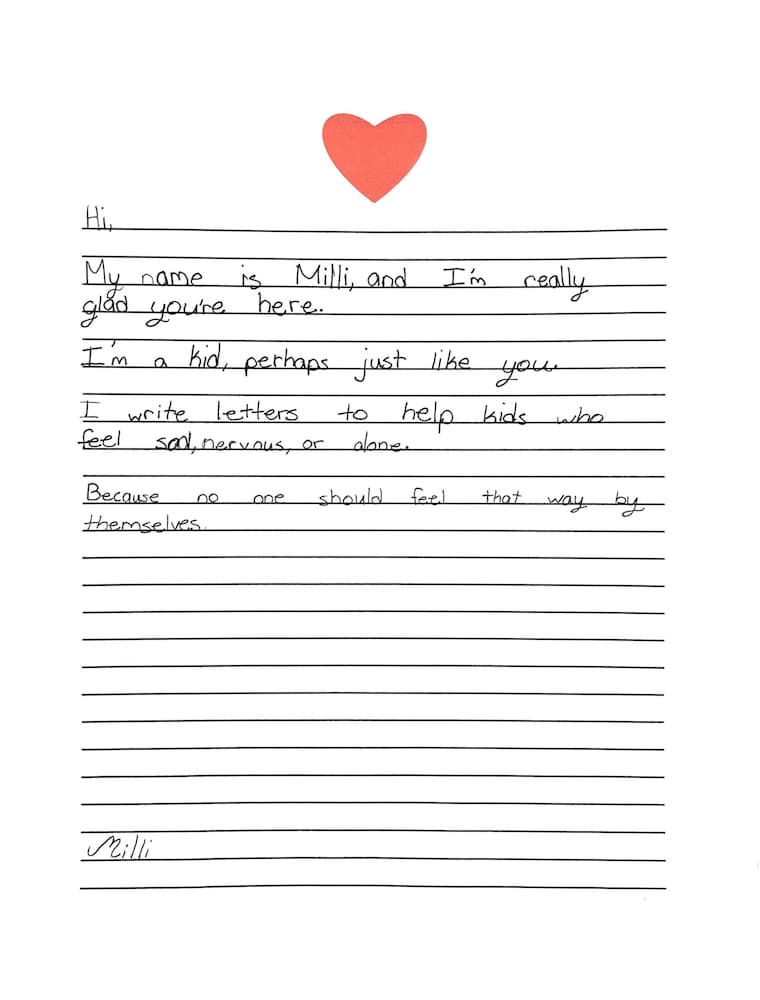 Hi,
My name is Milli, and I'm really
glad you're here.
I'm a kid, perhaps just like you.
I write letters to help kids who
feel sad, nervous, or alone.
Because no one should feel that way by
themselves.
Milli